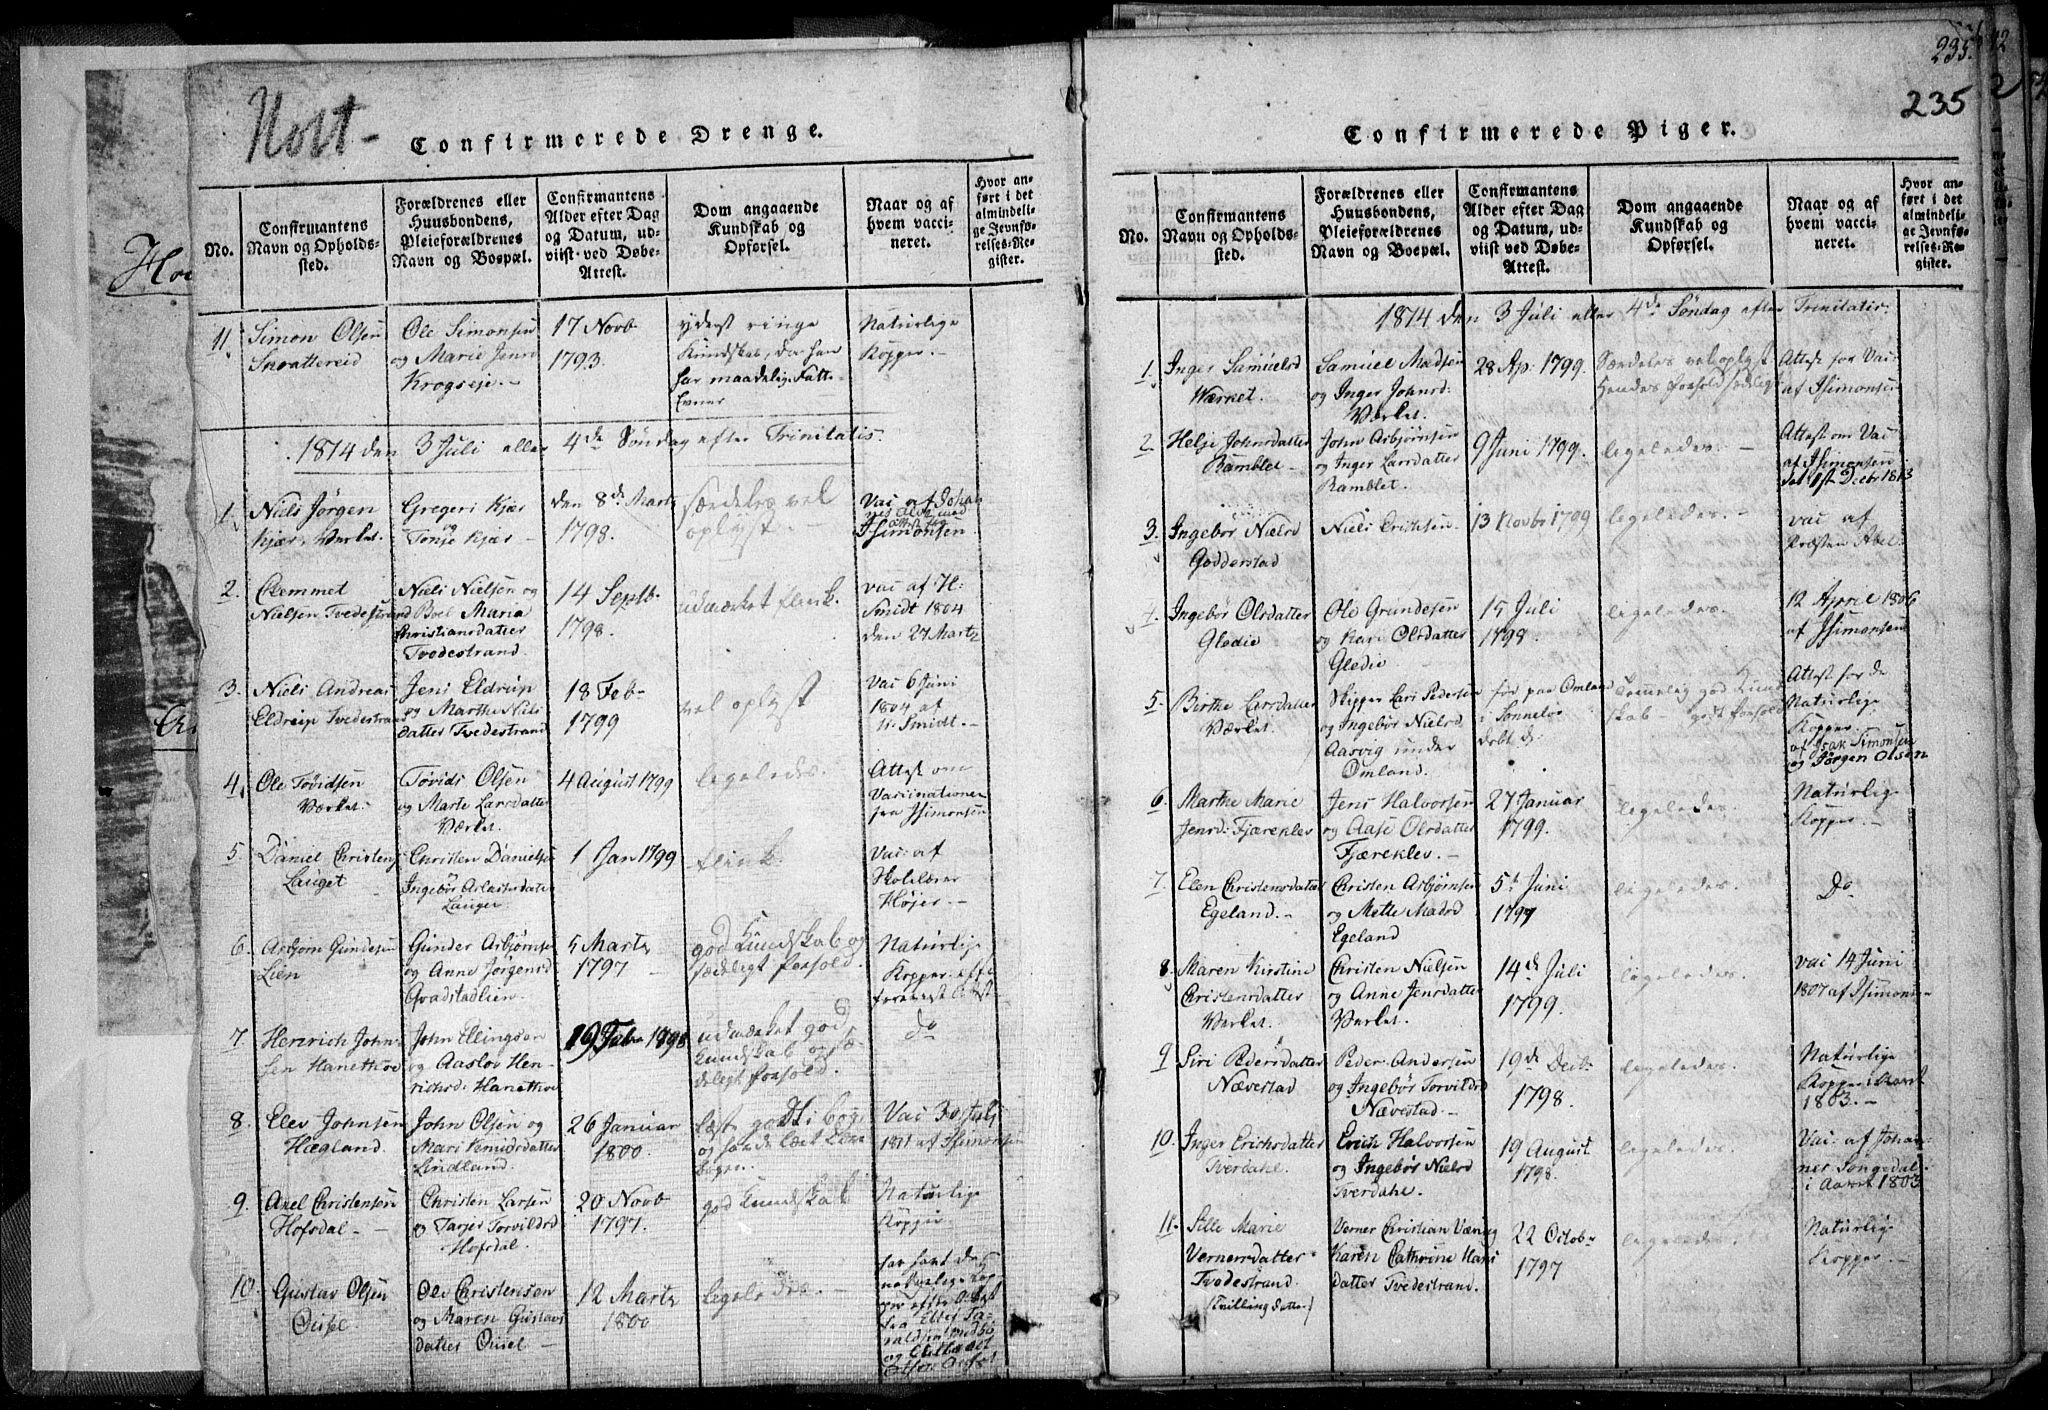 Holt-
Confirmerede Drenge.
No.
Confirmantens
Navn og Opholds-
sted.
Forældrenes eller
Huusbondens,
Pleieforældrenes
Navn og Bopæl.
Confirmantens
Alder efter Dag
og Datum, ud-
viist ved Døbe-
Attest.
Dom angaaende
Kundskab og
Opførsel.
Naar og af
hvem vacci-
neret.
Hvor an-
ført i det
almindeli-
ge Jevnfø-
relses-Re-
gister.
11.
Simon Olsen
Ole Simonsen
og Marie Jensd
17 Novb
1793.
yderst ringe
Kundskab, da han
har maadelig Fatte-
Evner
Naturlige
Kopper.-
1814 den 3 Juli eller 4de Søndag efter Trinitatis.
1.
Niels Jørgen
Kjær, Verket.
Gregeri Kjær
og
Tonje Kjær-
den 8de Marts
1798.
særdeles vel
oplyst-
Vac af
Isimonsen
2.
Clemmet
Nielsen Tvedestrand
Niels Nielsen og
Boel Maria
Christiansdatter
Tvedestrand.
14 Septb.
1798.
udmærket flink.
vac af H:
Smidt 1804
den 27 Marts
3.
Niels Andreas
Eldrup Tvedestrand
Jens Eldrup
og Marthe Niels
datter Tvedestrand
18 Feb-
1799
vel oplyst
vac 6 Juni
1804 af
H. Smidt.-
4.
Ole Tovidsen
Værket.
Tovids Olsen
og Marte Larsdatter
Værket.
4 August 1799
ligeledes.
Attest om
Vaccinationen
fra Isimonsen
5.
Daniel Christens
Lauget
Christen Danielsen
Ingebør
Lauget.
1 Jan 1799
flink.
Vac: af
Skolelærer
Højer.-
6.
Asbjørn Gundersen
Lien
Gunder Asbjørnsen
og Anne Jørgensd
5 Marts
1797
god Kundskab og
sædeligt Forhold.
Naturlige
Kopper efter
foreviist Attest
7
Henrich John-
sen Hanethoe
John Ellingsen
og Aaslov Hen-
richsd: Hanethoe
19 Feb 1798
udmærket god
kundskab og sæ-
deligt forhold.
do
8.
Elev Johnsen
Hægland.
John Olsen og
Mari Knudsdatter
Lindland.
26 Januar
1800.
læst godt i bog,
og har de lært Lære-
bogen.
Vac 30 July
1811 af Isimonsen
9.
Axel Christensen
Hofsdal -
Christen Larsen
og Tarjer Torvildsd
Hofsdal.
20 Novb
1797.
god Kundskab
Naturlige
Kopper
10.
Gustav Olsen
Ousel
Ole Christensen
og Maren Gustavs
datter Ousel
12 Marts
1800
ligeledes.-
har havt de
naturlige Kop-
per efter Attest
fra
235.
235
Confirmerede Piger.
No.
Confirmantens
Navn og Opholds-
sted.
Forældrenes eller
Huusbondens,
Pleieforældrenes
Navn og Boepæl.
Confirmantens
Alder efter Dag
og Datum, ud-
viist ved Døbe-
Attest.
Dom angaaende
Kundskab og
Opførsel.
Naar og af
hvem vacci-
neret.
Hvor an-
ført i det
almindeli-
ge Jevnfø-
relses-Re-
gister.
1814 den 3 Juli eller 4de Søndag efter Trinitatis.
1.
Inger Samuelsd
Værket.
Samuel Madsen
og Inger Johnsd.
Værket.
28 Ap: 1799.
Særdeles vel oplyst
Hendes forhold sædeligt
Attest for Vac
af Isimonsen
2
Helje Johnsdatter
Ramblet -
John Asbjørnsen
og Inger Larsdatter
Ramblet.
9 Juni 1799.
ligeledes. -
Attest om Vac
af Isimonsen
det 1st Decbr 1813
3.
Ingebør Nielsd
Godderstad
Niels
13 Novbr 1799
ligeledes.-
vac af
Præsten Abel.
4.
Ingebør Olsdatter
Gledie
Ole Gundersen
og Kari Olsdatter
Gledie
15 Juli
1798.
ligeledes.
12 April 1806
af Isimonsen
5.
Birthe Larsdatter
Værket.
Skipper Lars Pedersen
og Ingebør Nielsd
Aasvig under
Omland.
før paa Omland
i
døbt d:
Temmelig god Kund
skab - godt forhold
Attest for de
Naturlige
Kopper
af Isak Simonsen
og Jørgen Olsen
6.
Marthe Marie
Jensd: Fjæreklev
Jens Halvorsen
og Aase Olsdatter
Fjæreklev.-
27 Januar
1799.
ligeledes.
Naturlig
Kopper.-
7.
Elen Christensdatter
Egeland.-
Christen Asbjørnsen
og Mette Madsd
Egeland
5t Juni
1799
ligeledes.
Do
8.
Maren Kirstine
Christensdatter
Verket.
Christen Nielsen
og Anne Jensdatter
Verket.
14de Juli
1799.
ligeledes.
vac 14 Juni
1807 af Isimons-
9
Siri Pedersdatter
Nævestad
Peder Andersen
og Ingebør Torvildsd
Nævestad.-
19de Decb:
1798.
ligeledes.
Naturlige
Kopper i Aaret
1803.-
10.
Inger Erichsdatter
Tverdahl.
Erich Halvorsen
og Ingebør Nielsd
Tverdahl.
19 August
1798.
ligeledes.
Vac: af Johan-
nes Songedal
i Aaret 1803
11.
Sille Marie
Vernersdatter
Tvedestrand.
(Tvillingdatter)
Verner Christian Væning
Karen Cathrine Hans
datter Tvedestrand.
22 Octob-
1797
ligeledes.
Naturlig
Kopper.-